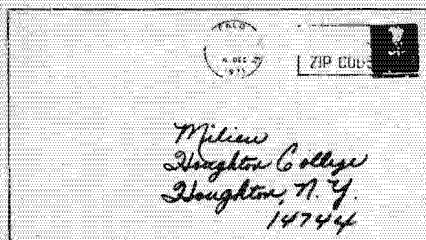 DEC
197
ZIP CODE
Milieu
Houghton College
Houghton, N.Y.
14744